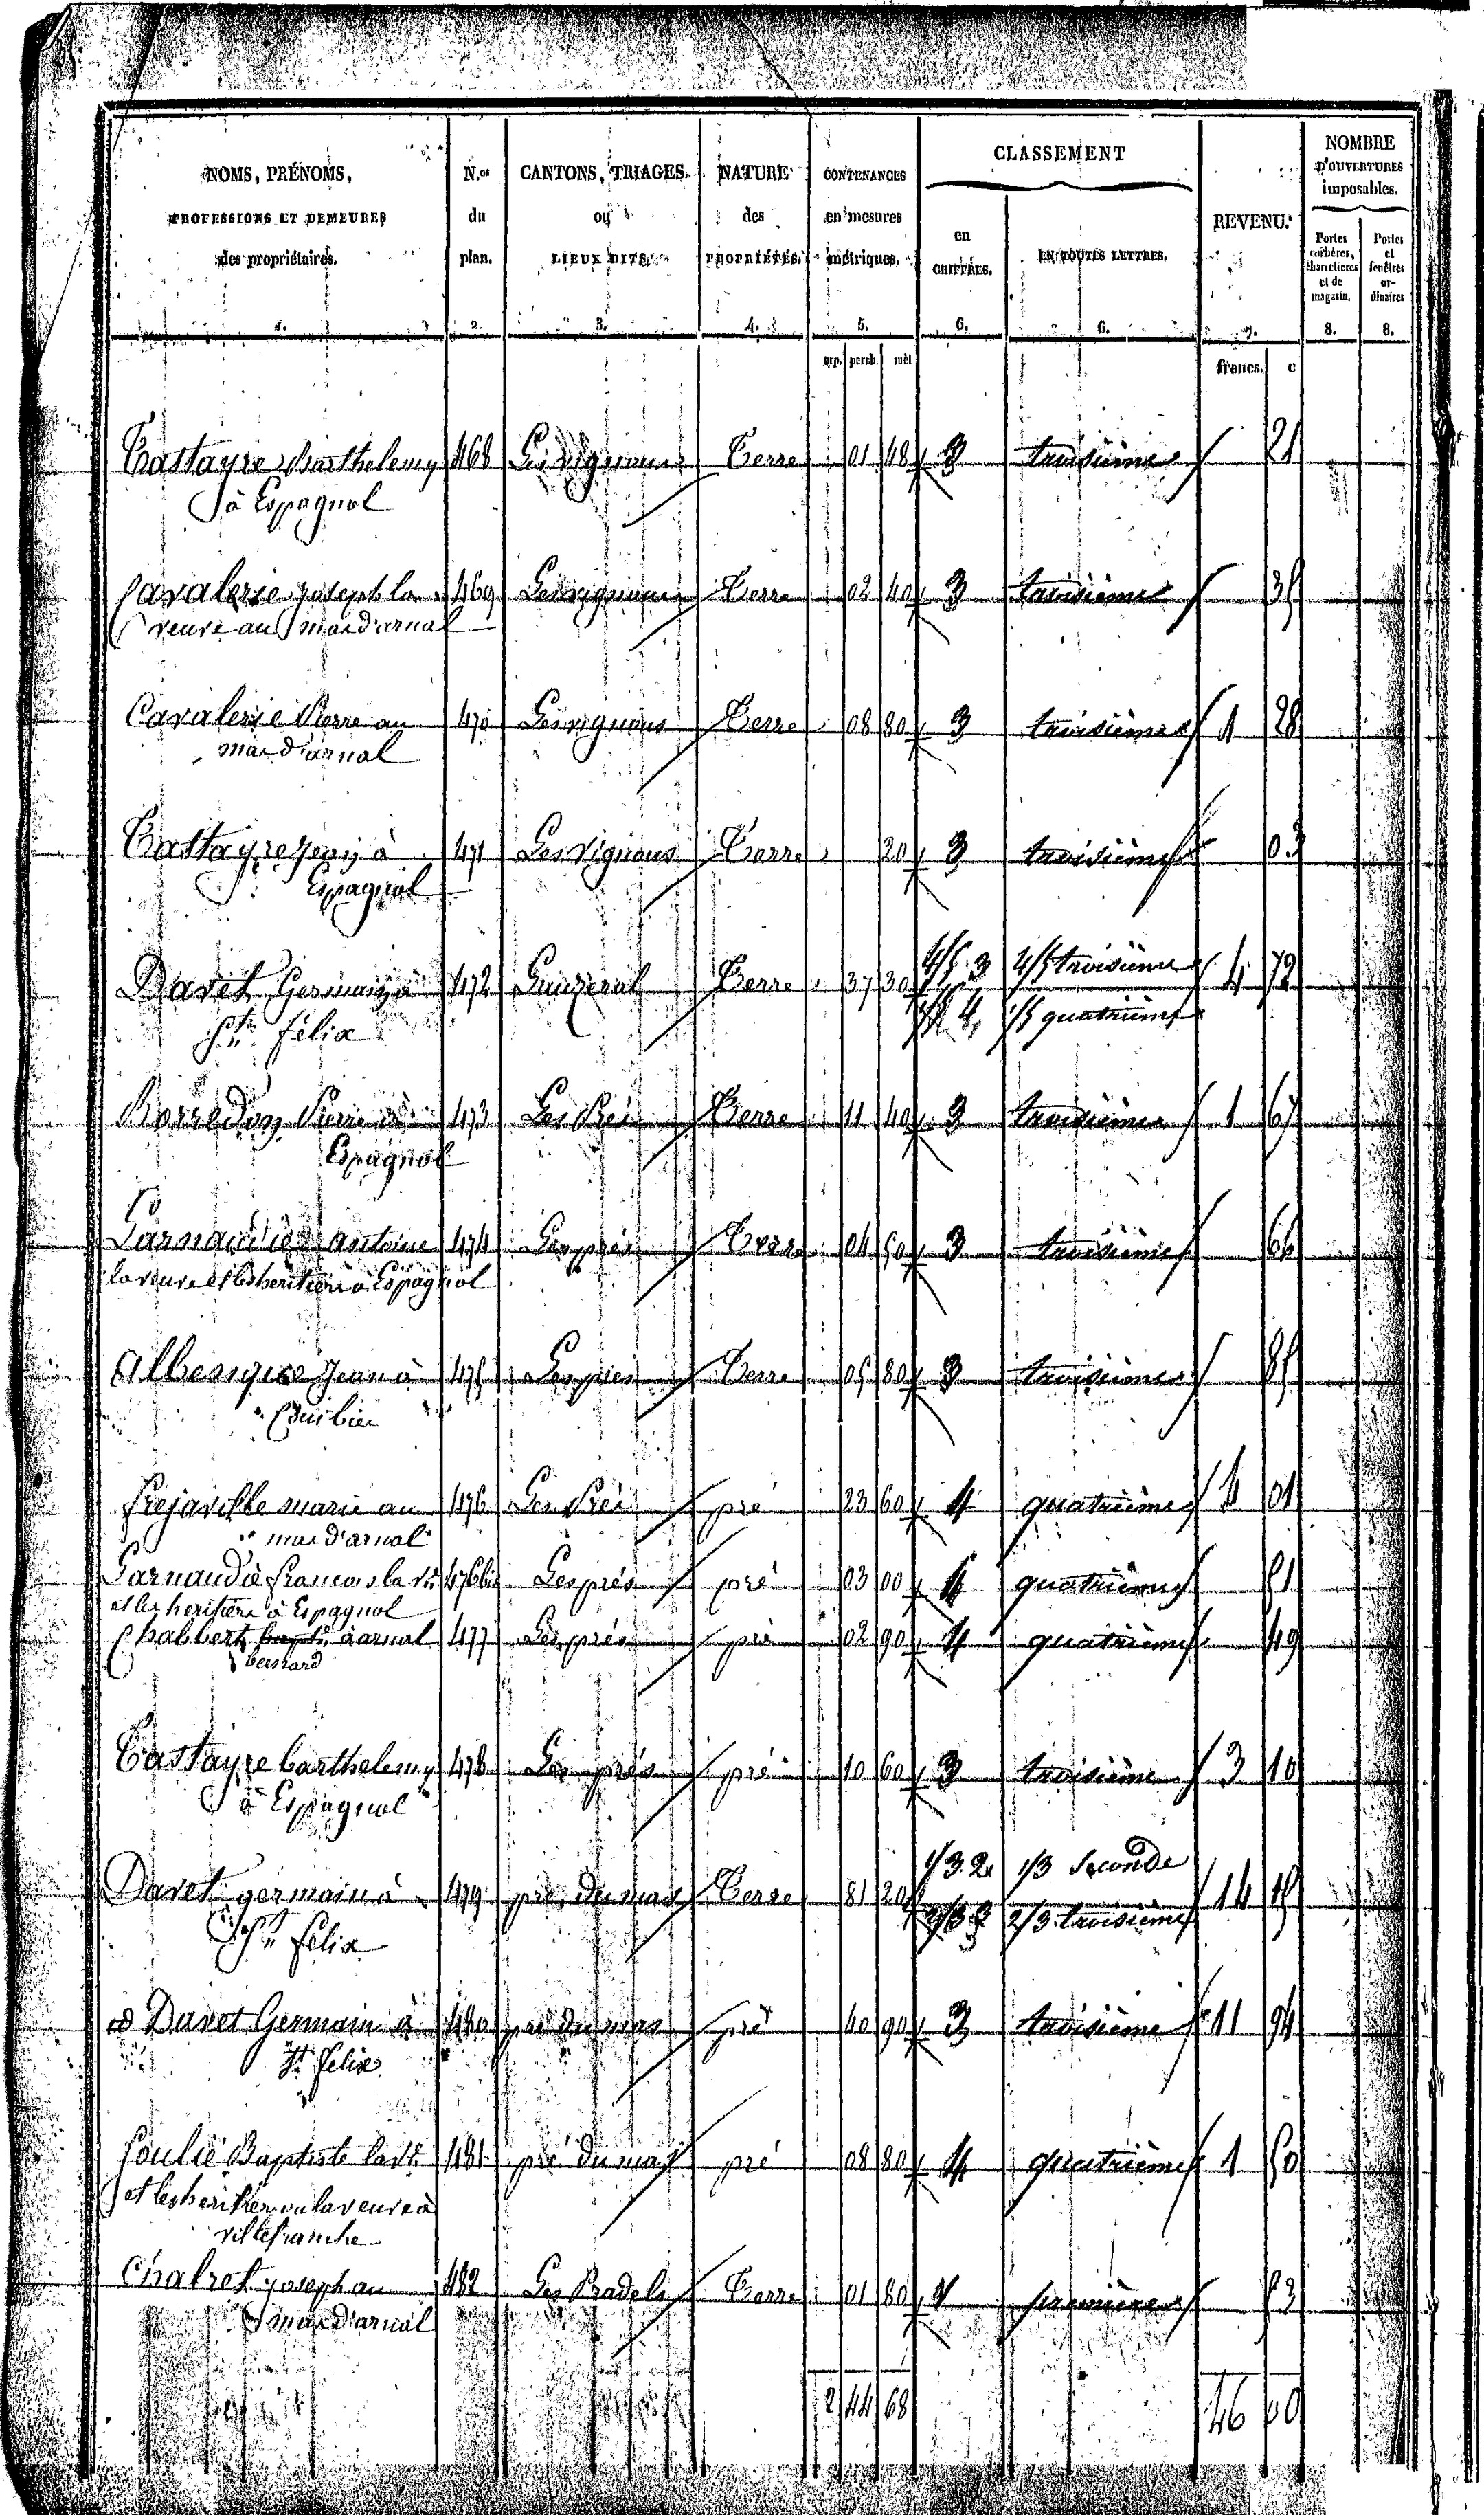 NOMS, PRÉNOMS,
PROFESSIONS ET DEMEURES
des propriétaires.
1.
N.os
du
plan.
2.
CANTONS, TRIAGES.
ou
LIEUX DITS.
3.
NATURE
des
PROPRIÉTÉS.
4.
CONTENANCES
en mesures
métriques.
5.
CLASSEMENT
en
CHIFFRES.
6.
EN TOUTES LETTRES.
6.
REVENU.
7.
NOMBRE
D'OUVERTURES
imposables.
Portes
cochères,
charretières
et de
magasin.
8.
Portes
et
fenêtres
or-
dinaires
8.
arp. perch. mèt francs. c
Tastayre Barthelemy 468 Les vignous Terre 01 48 3 troisième 21
à Espagnol
Cavalerie joseph la 469 Les vignous Terre 02 40 3 troisième 35
veuve au mas d'arnal
Cavalerie Pierre au 470 Les vignous Terre 08 80 3 troisième 1 28
mas d'arnal
Tastayre Jean à 471 Les vignous Terre 20 3 troisième 03
Espagnol
Davet Germain à 472 Terre 37 30 4/5 3 4/5 troisième 4 72
St. félix 1/5 4 1/5 quatrième
Pierre à 473 Les Prés Terre 11 40 3 troisième 1 67
Espagnol
antoine 474 Les prés Terre 04 50 3 troisième 66
la veuve et les heritiers à Espagnol
Albenque Jean à 475 Les prés Terre 05 80 3 troisième 85
Courbiés
Frejaville marie au 476 Les Prés pré 23 60 4 quatrième 4 01
mas d'arnal
francois la ve 476 bis Les prés pré 03 00 4 quatrième 51
et les heritiers à Espagnol
Chabbert à arnal 477 Les prés pré 02 90 4 quatrième 49
bernard
Tastayre barthelemy 478 Les prés pré 10 60 3 troisième 3 10
à Espagnol
Davet germain à 479 pré du mas Terre 81 20 1/3 2 1/3 seconde 14 45
St. félix 2/3 3 2/3 troisième
Davet Germain à 480 pré du mas pré 40 90 3 troisième 11 94
St. félix
Soulié Baptiste la ve 481 pré du mas pré 08 80 4 quatrième 1 50
et les heritiers ou la veuve à
villefranche
Chatret joseph au 482 Les Pradels Terre 01 80 1 première 53
mas d'arnal
2 44 68 46 00